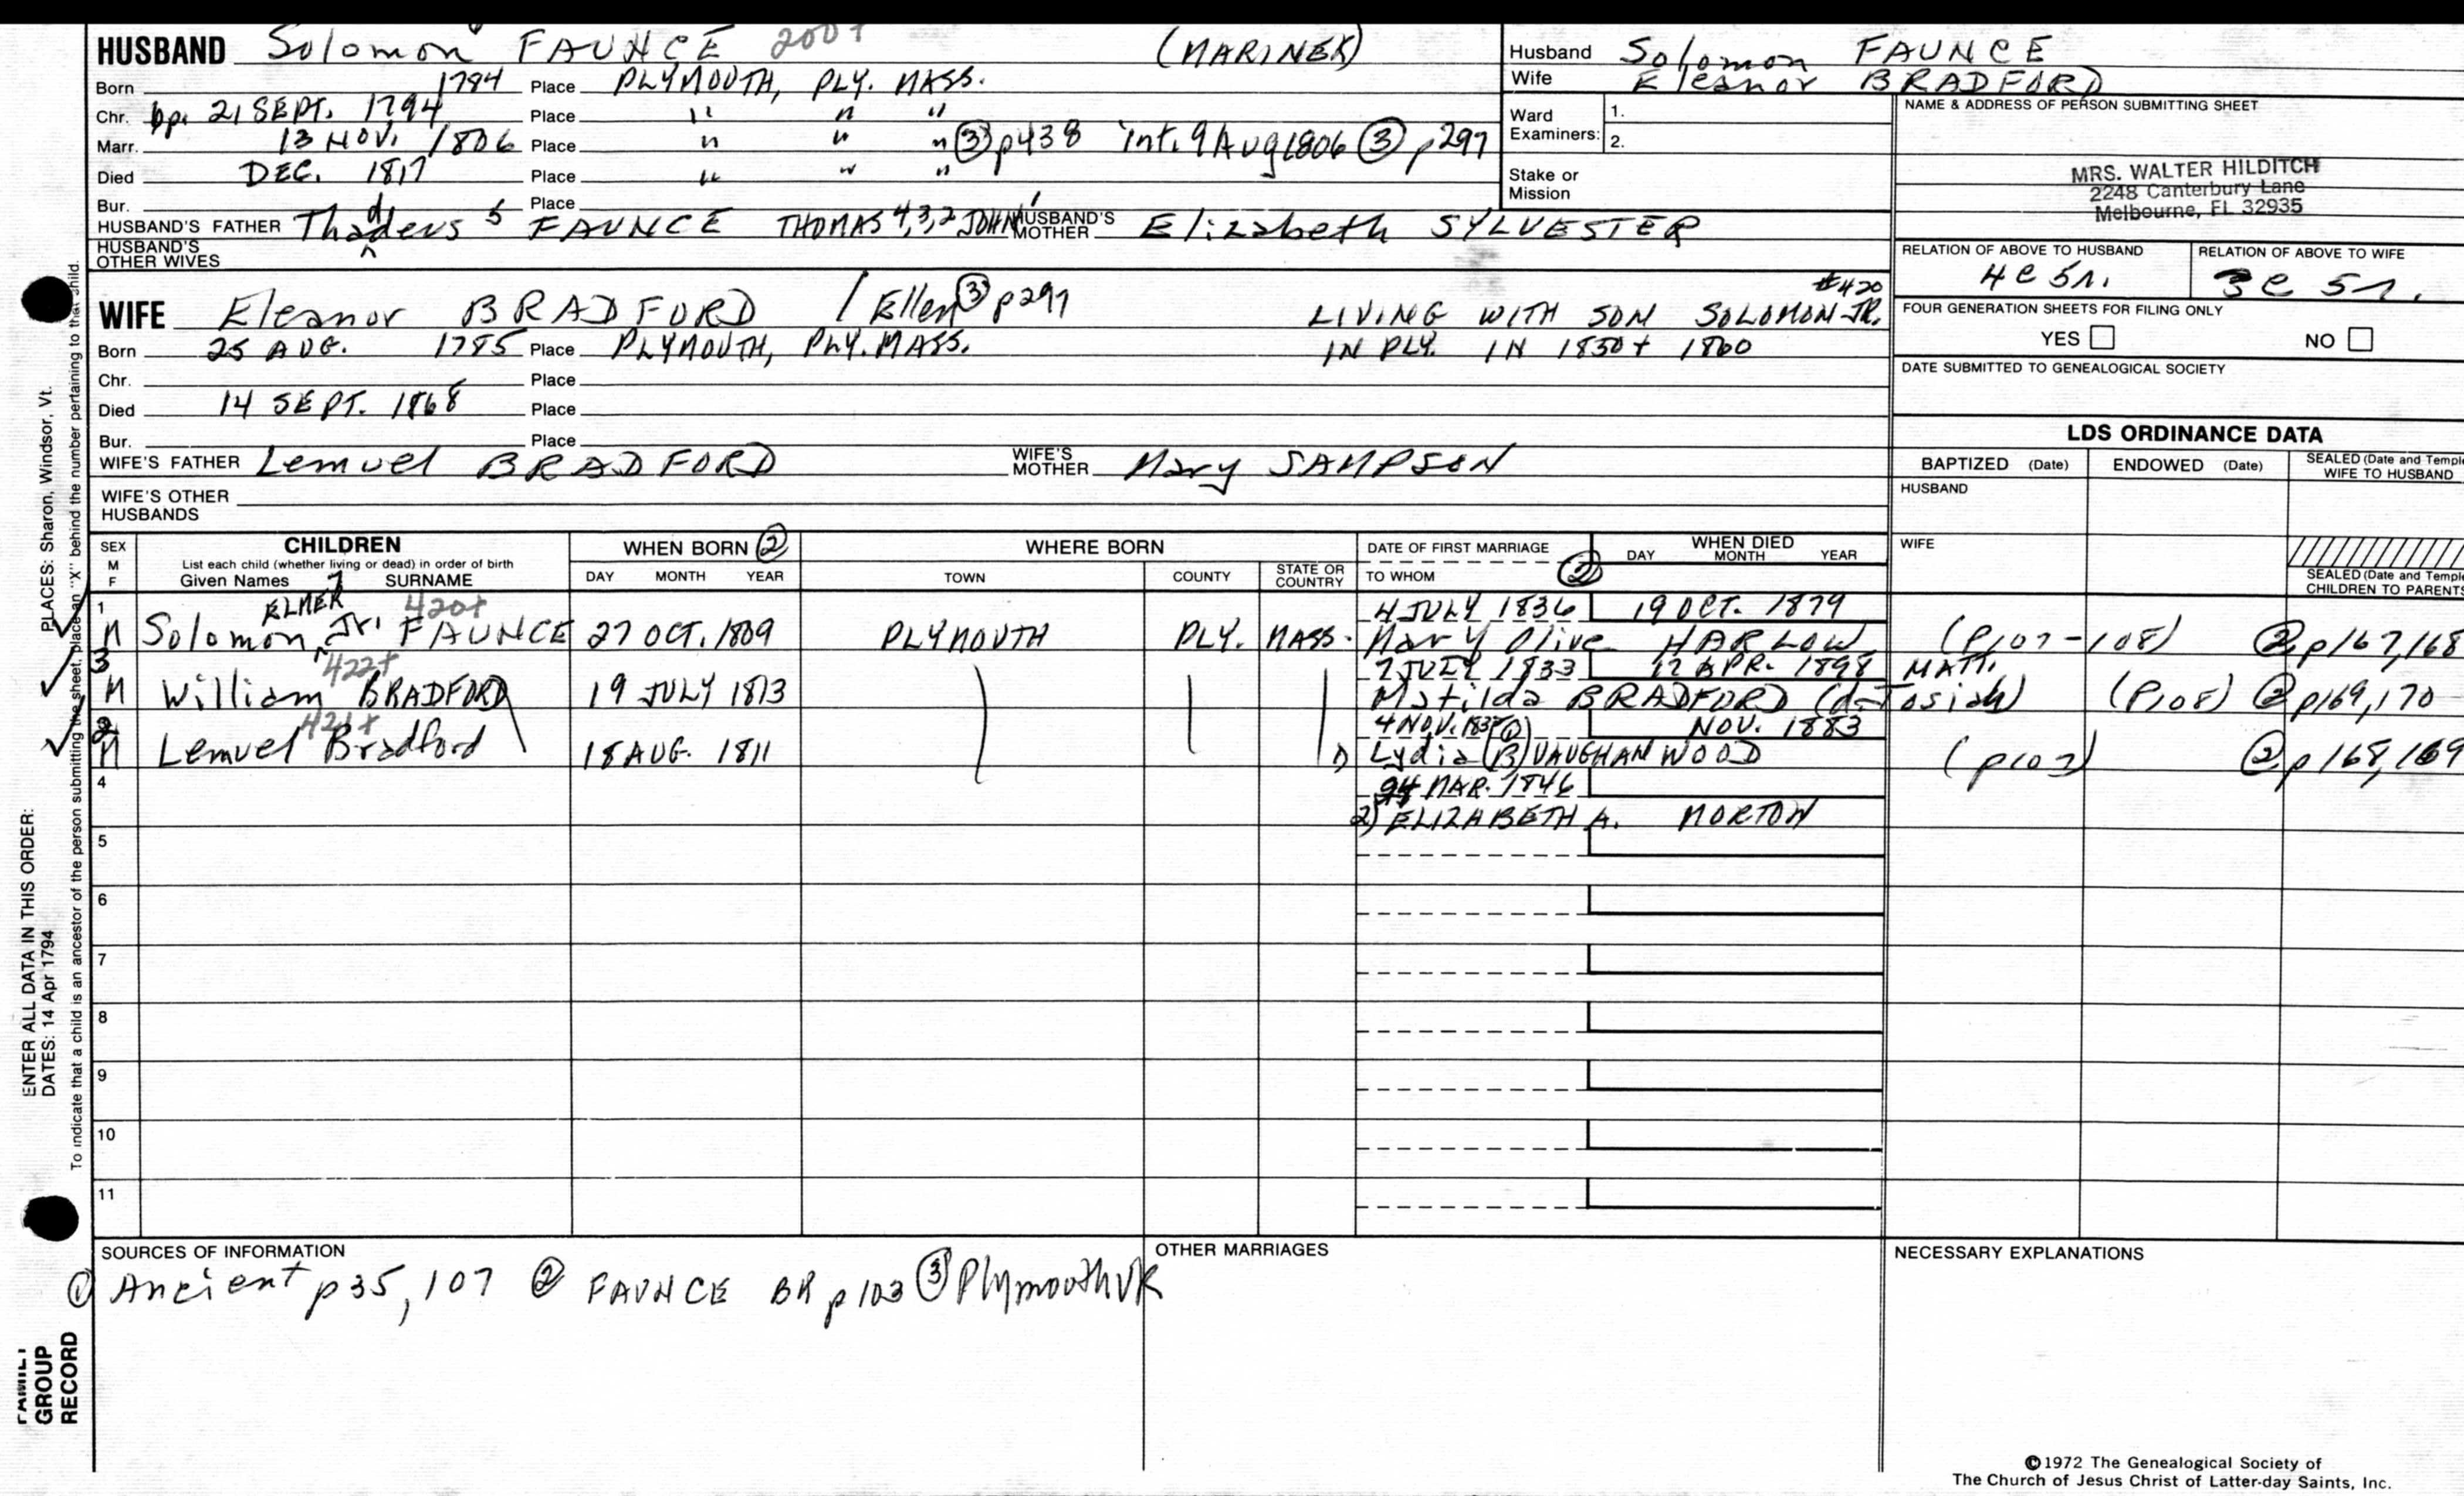 HUSBAND Solomon FAUNCE 200+ (MARINER)
Born 1784 Place PLYMOUTH, PLY. MASS.
Chr. bp. 21 SEPT. 1794 Place " " "
Marr. 13 NOV. 1806 Place " " " ③ p438 int. 9 Aug 1806 ③ p297
Died DEC. 1817 Place " " "
Bur. Place
HUSBAND'S FATHER Thaddeus 5 FAUNCE THOMAS 4,3,2 JOHN 1 HUSBAND'S MOTHER Elizabeth SYLVESTER
HUSBAND'S OTHER WIVES
Husband Solomon FAUNCE
Wife Eleanor BRADFORD
Ward Examiners: 1.
2.
Stake or Mission
NAME & ADDRESS OF PERSON SUBMITTING SHEET
MRS. WALTER HILDITCH
2248 Canterbury Lane
Melbourne, FL 32935
RELATION OF ABOVE TO HUSBAND RELATION OF ABOVE TO WIFE
4 C 5r. 3 C 5r.
FOUR GENERATION SHEETS FOR FILING ONLY
YES NO
DATE SUBMITTED TO GENEALOGICAL SOCIETY
WIFE Eleanor BRADFORD / Ellen ③ p297 #420
LIVING WITH SON SOLOMON JR.
Born 25 AUG. 1785 Place PLYMOUTH, PLY. MASS. IN PLY. IN 1850 + 1860
Chr. Place
Died 14 SEPT. 1868 Place
Bur. Place
WIFE'S FATHER Lemuel BRADFORD WIFE'S MOTHER Mary SAMPSON
WIFE'S OTHER HUSBANDS
LDS ORDINANCE DATA
BAPTIZED (Date) ENDOWED (Date) SEALED (Date and Templ
WIFE TO HUSBAND
HUSBAND
WIFE
SEALED (Date and Templ
CHILDREN TO PARENTS
SEX M F CHILDREN WHEN BORN ② WHERE BORN DATE OF FIRST MARRIAGE WHEN DIED
List each child (whether living or dead) in order of birth
Given Names 7 SURNAME DAY MONTH YEAR TOWN COUNTY STATE OR COUNTRY TO WHOM ② DAY MONTH YEAR
1 ELMER 420+ 4 JULY 1836 19 OCT. 1879
M Solomon Jr. FAUNCE 27 OCT. 1809 PLYMOUTH PLY. MASS. Mary Olive HARLOW (P107-108) ② p167,168
3 422+ 7 JULY 1833 12 APR. 1898 MATT.
M William BRADFORD 19 JULY 1813 Matilda BRADFORD (d-Josiah) (P108) ② p169,170
2 421+ 4 NOV. 183 ① NOV. 1883
M Lemuel Bradford 18 AUG. 1811 1) Lydia (B) VAUGHAN WOOD (p107) ② p168,169
4 MAR. 1846
2) ELIZABETH A. MORTON
5
6
7
8
9
10
11
SOURCES OF INFORMATION OTHER MARRIAGES NECESSARY EXPLANATIONS
① Ancient p35, 107 ② FAUNCE BR p103 ③ Plymouth VR
ENTER ALL DATA IN THIS ORDER:
DATES: 14 Apr 1794 PLACES: Sharon, Windsor, Vt.
To indicate that a child is an ancestor of the person submitting the sheet, place an "X" behind the number pertaining to that child.
FAMILY GROUP RECORD
©1972 The Genealogical Society of
The Church of Jesus Christ of Latter-day Saints, Inc.